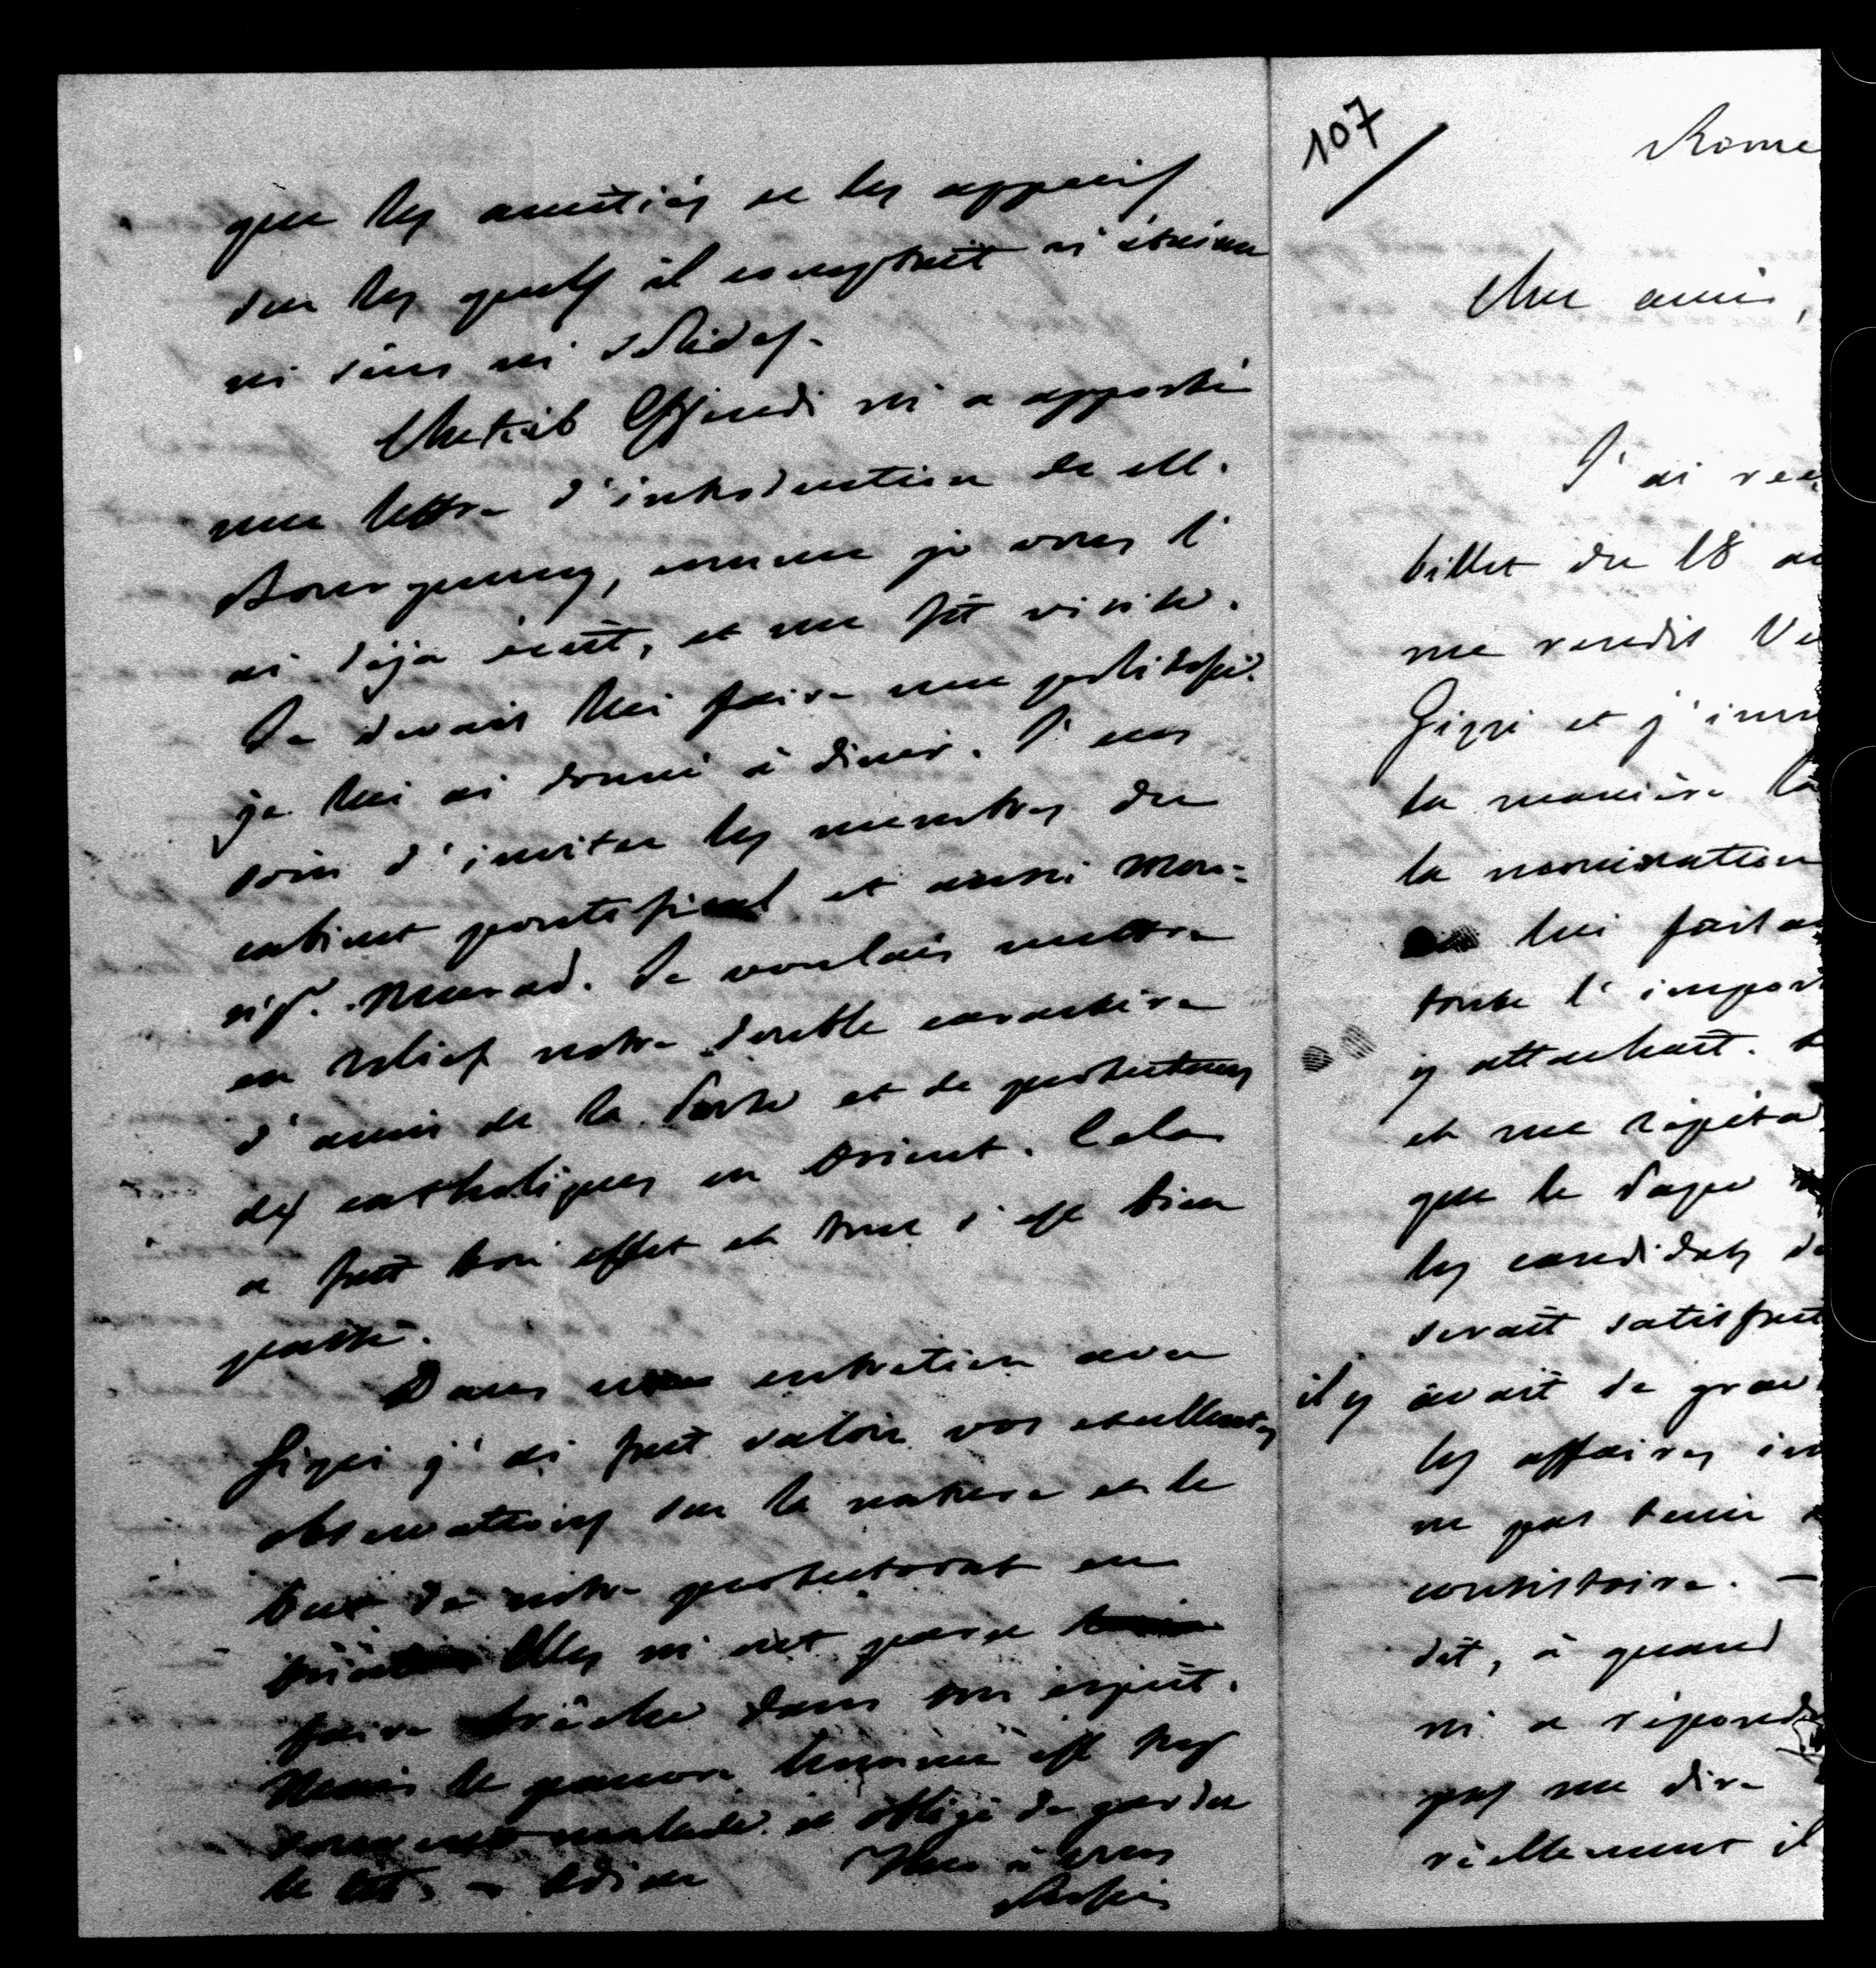 que les amitiés et les appuis
sur les quels il comptait n'étaient
ni sûrs ni solides.
Chekib Effendi m'a apporté
une lettre d'introduction de M.
Bourqueney, comme je vous l'
ai déja écrit, et me fit visite.
Je devais lui faire une politesse.
je lui ai donné à diner. J'eus
soin d'inviter les membres du
cabinet pontifical et aussi Mon=
sigr. Murad. Je voulais mettre
en relief notre double caractère
d'amis de la Porte et de protecteurs
des catholiques en Orient. Cela
a fait bon effet et tout s'est bien
passé.
Dans entretien avec
Gizzi j'ai fait valoir vos excellentes
observations sur la nature et le
but de notre protectorat en
Orient. Elles m'ont paru
faire brèche dans son esprit.
Mais le pauvre homme est trop
souvent malade et obligé de garder
le lit. — Adieu Tout à vous
Rossi
107
Rome
Cher ami,
J'ai reç
billet du 18 au
me rendis
Gizzi et j'in
la manière la
la nomination
lui faisa
toute l'impor
y attachait.
et me répéta
que le Pape
les candidats de
serait satisfait
il y avait de grav
les affaires in
ne pas tenir
consistoire. —
dit, à quand
m'a répond
pas me dire
réellement il